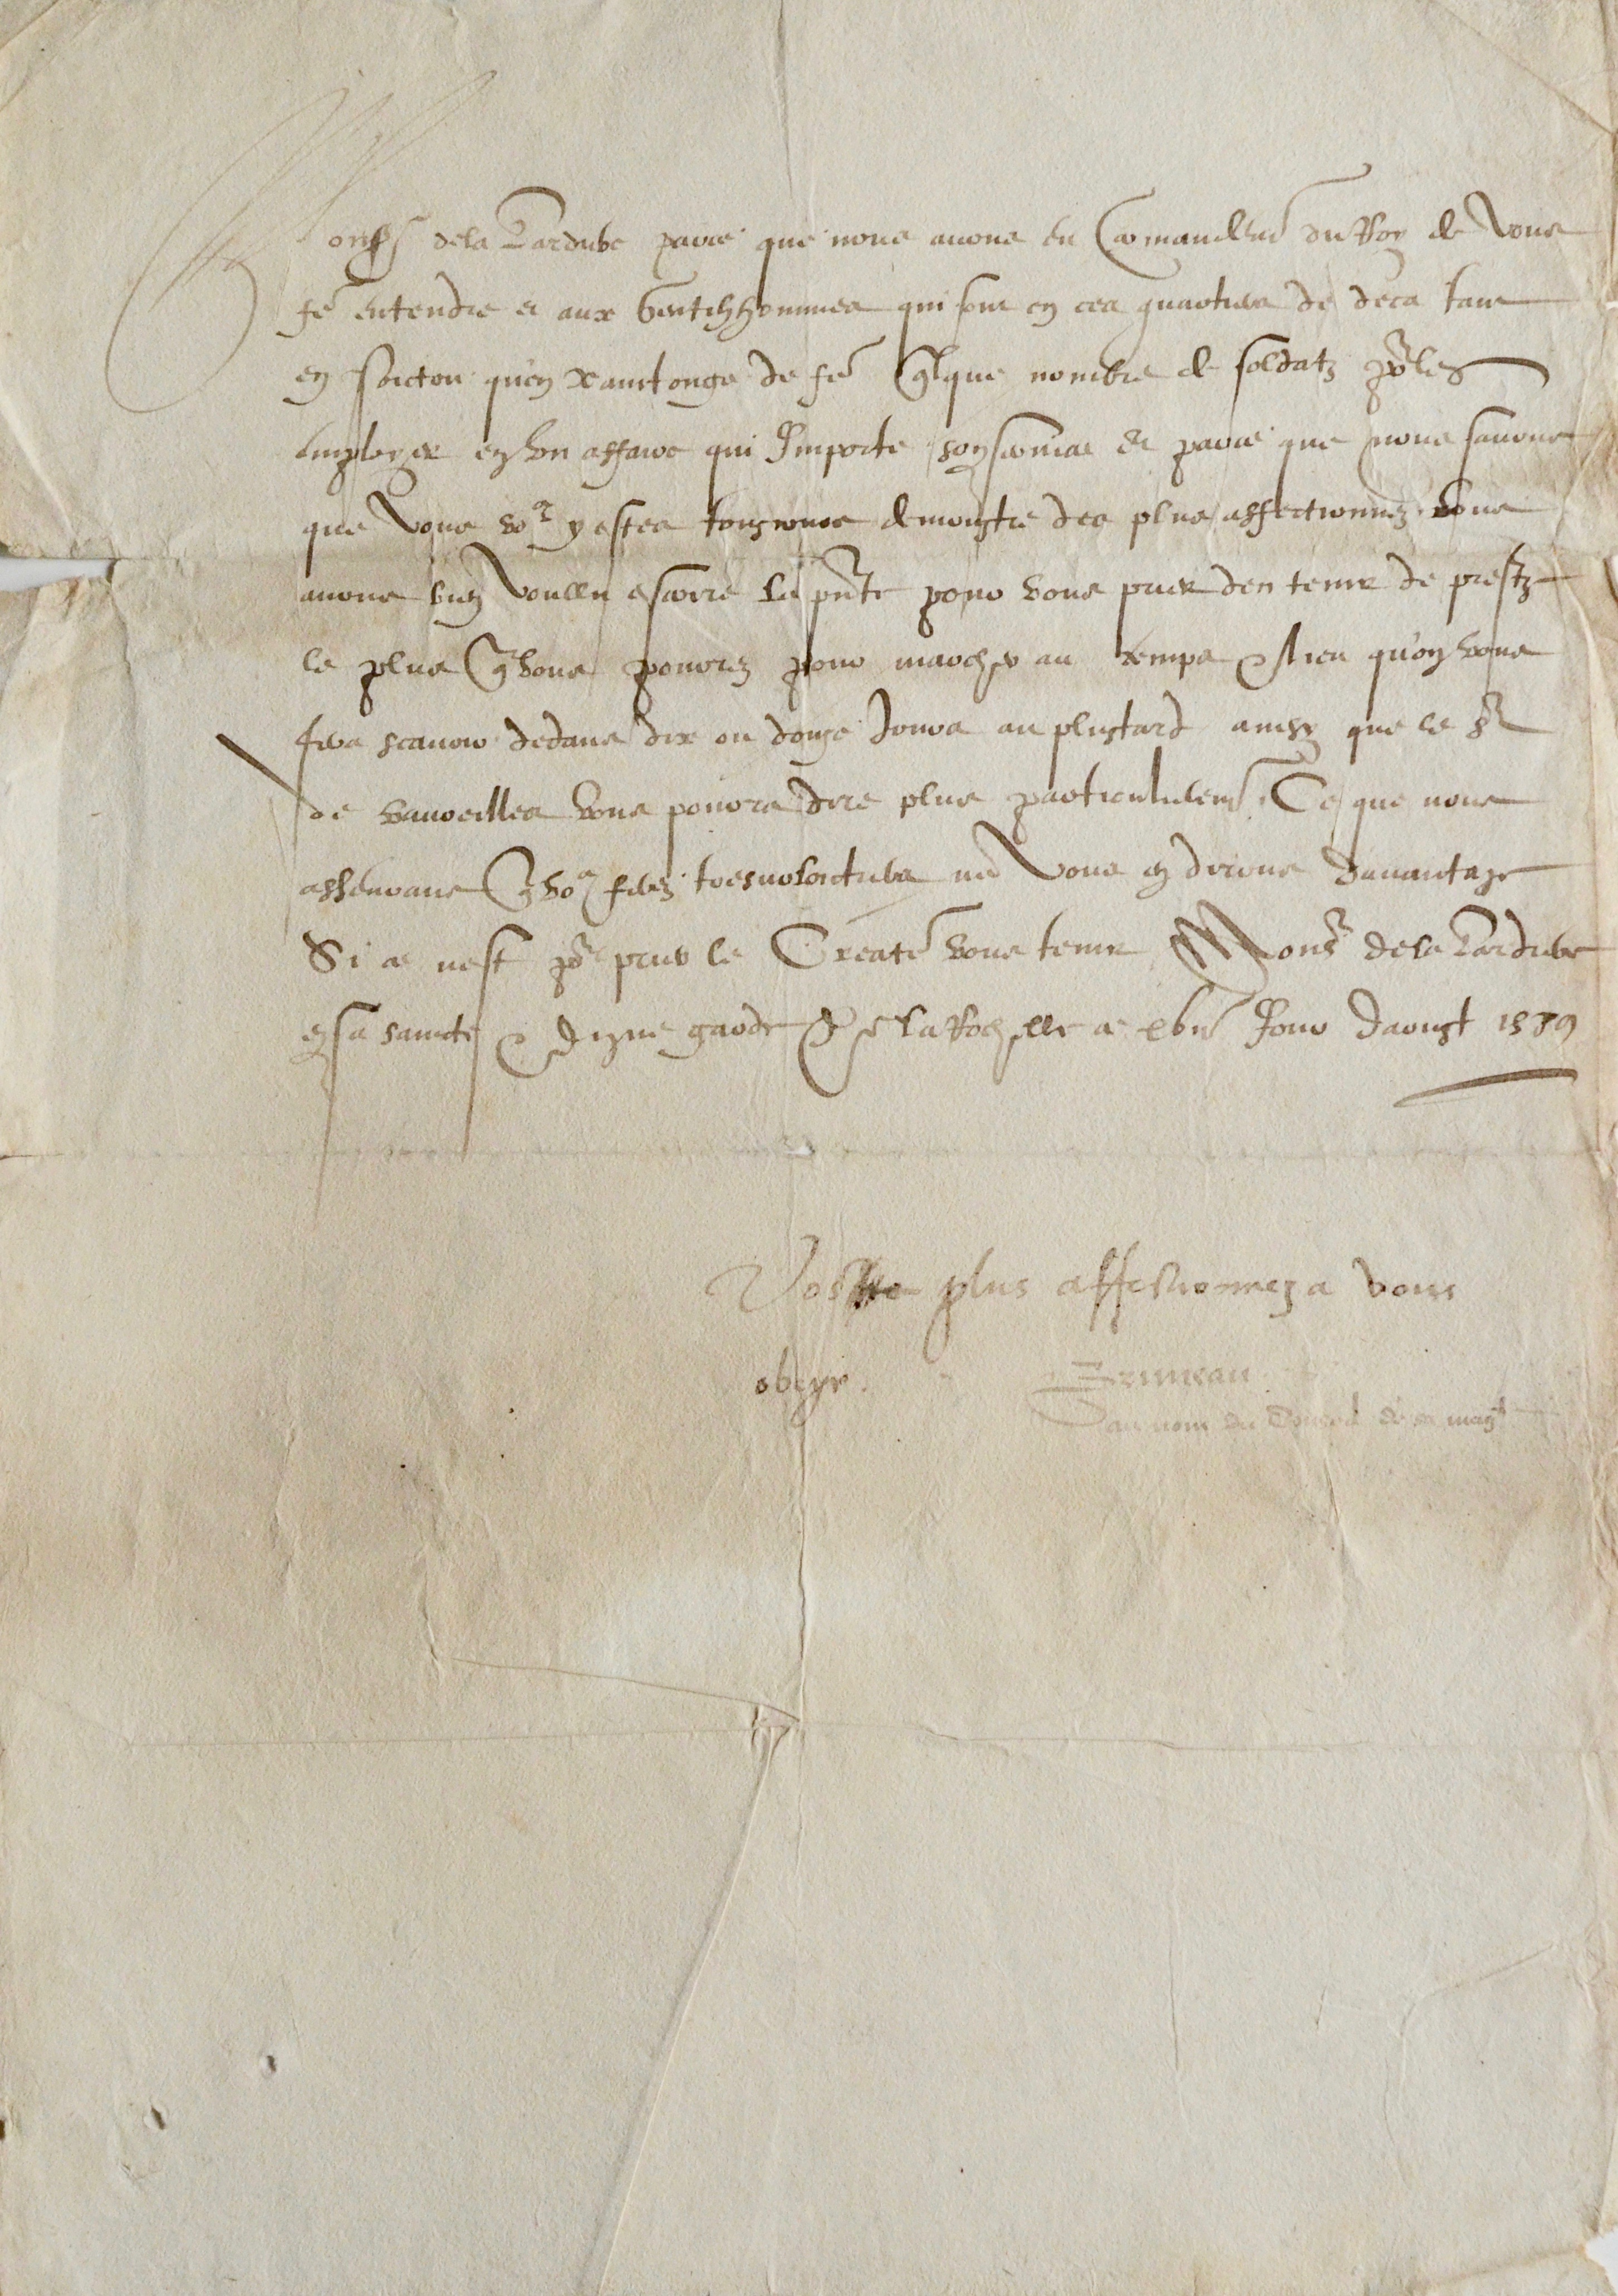 Monsr de la Tardube parce que nous auons eu Comandemt du Roy de vous
fe entendre et aux Gentilzhommes qui sont en ces quartiers de deca tant
en Poictou qu'en Xainctonge de fe qlque nombre de soldatz pr les
employer en son affaire qui Importe son seruice Et parce que nous sauons
que vous vos y estes tousiours demonstre des plus affectionnez vous
auons bien voullu escrire la pnte pour vous prier den tenir de prestz
le plus q vous pourrez pour marcher au temps & lieu qu'on vous
fera scauoir dedans dix ou douze Jours au plustard ainsy que le Sr
de vauceilles vous pourra dire plus particulieremt Ce que nous
asseurans q vos ferez tres volontiers ne vous en dirons dauantage
Si ce nest pr prier le Creater vous tenir Monsr de la Tardube
en sa saincte & digne garde De la Rochelle ce xvie Jour daoust 1579
Vostre plus affectionnez a vous
obeyr.
Bruneau
au nom du Conseil de sa magte